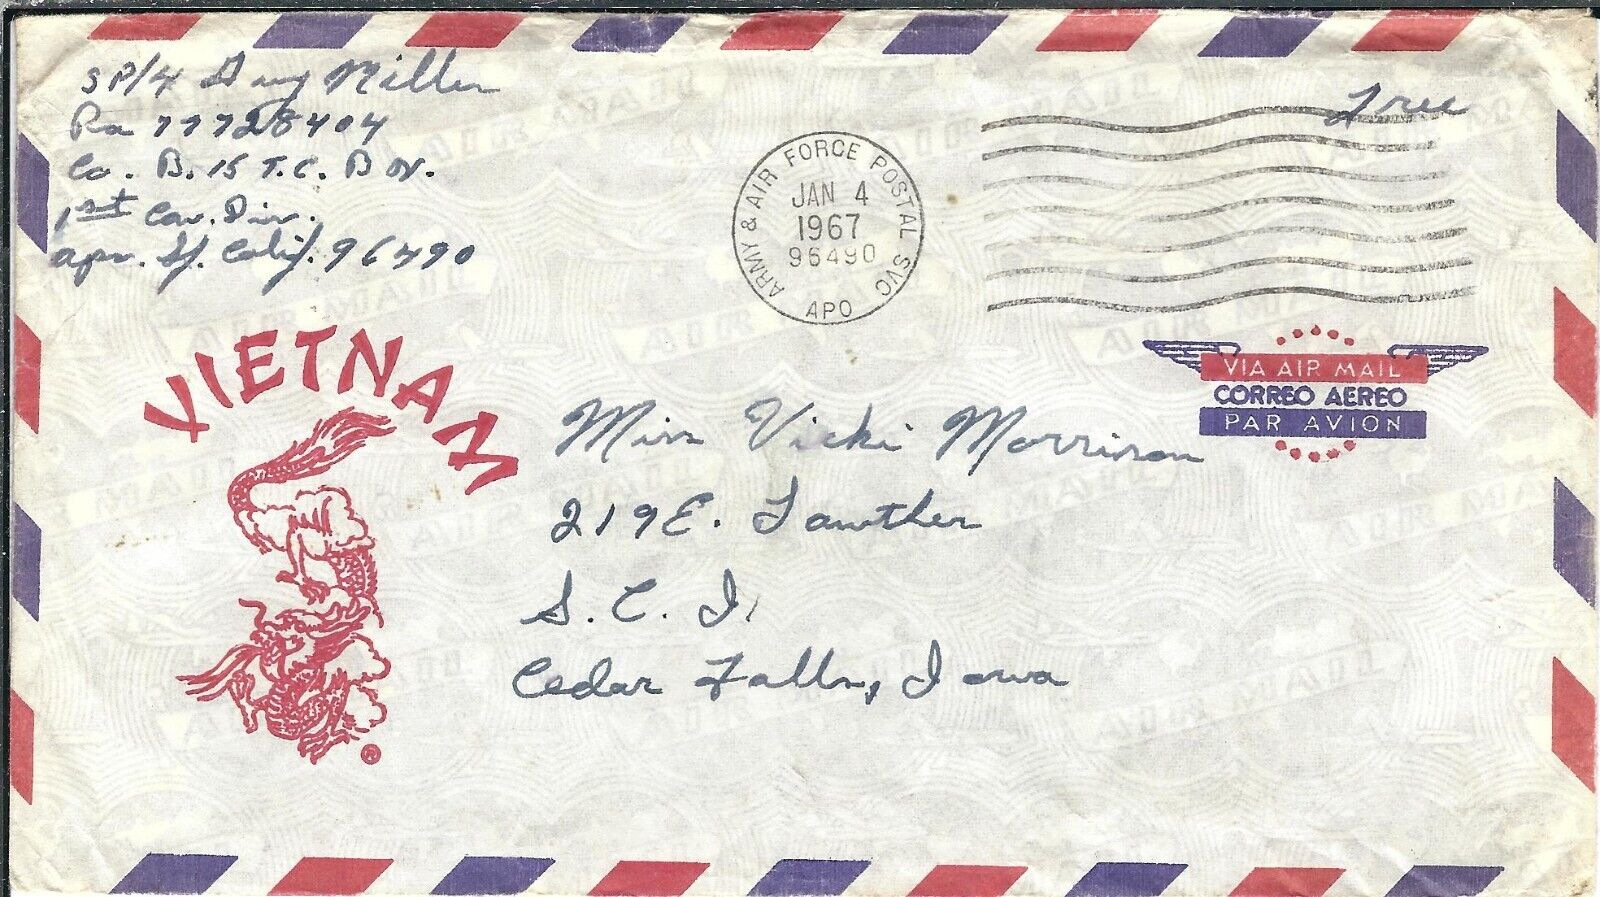 SP/4 Guy Miller
Ra 77728404
Co. B. 15 T.C. BN.
1st Cav. Div.
apo. Sf. Calif. 96490
Free
ARMY & AIR FORCE POSTAL SVC
JAN 4
1967
96490
APO
VIETNAM
®
VIA AIR MAIL
CORREO AEREO
PAR AVION
Miss Vicki Morrison
219 E. Lawther
S. C. I.
Cedar Falls, Iowa